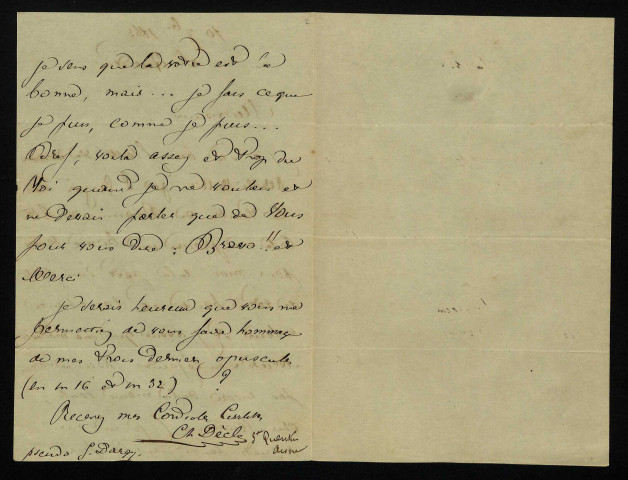 je sens que la votre est la
bonne, mais... je fais ce que
je puis, comme je puis...
Bref, voilà assez et trop du
Moi quand je ne voulais et
ne devais parler que de Vous
pour vous dire : Bravo !! et
Merci
je serais heureux que vous me
permettiez de vous faire hommage
de mes trois derniers opuscules
(en in 16 et in 32) ?
Recevez mes Cordiales
Ch Decle St Quentin
Aisne
pseudo